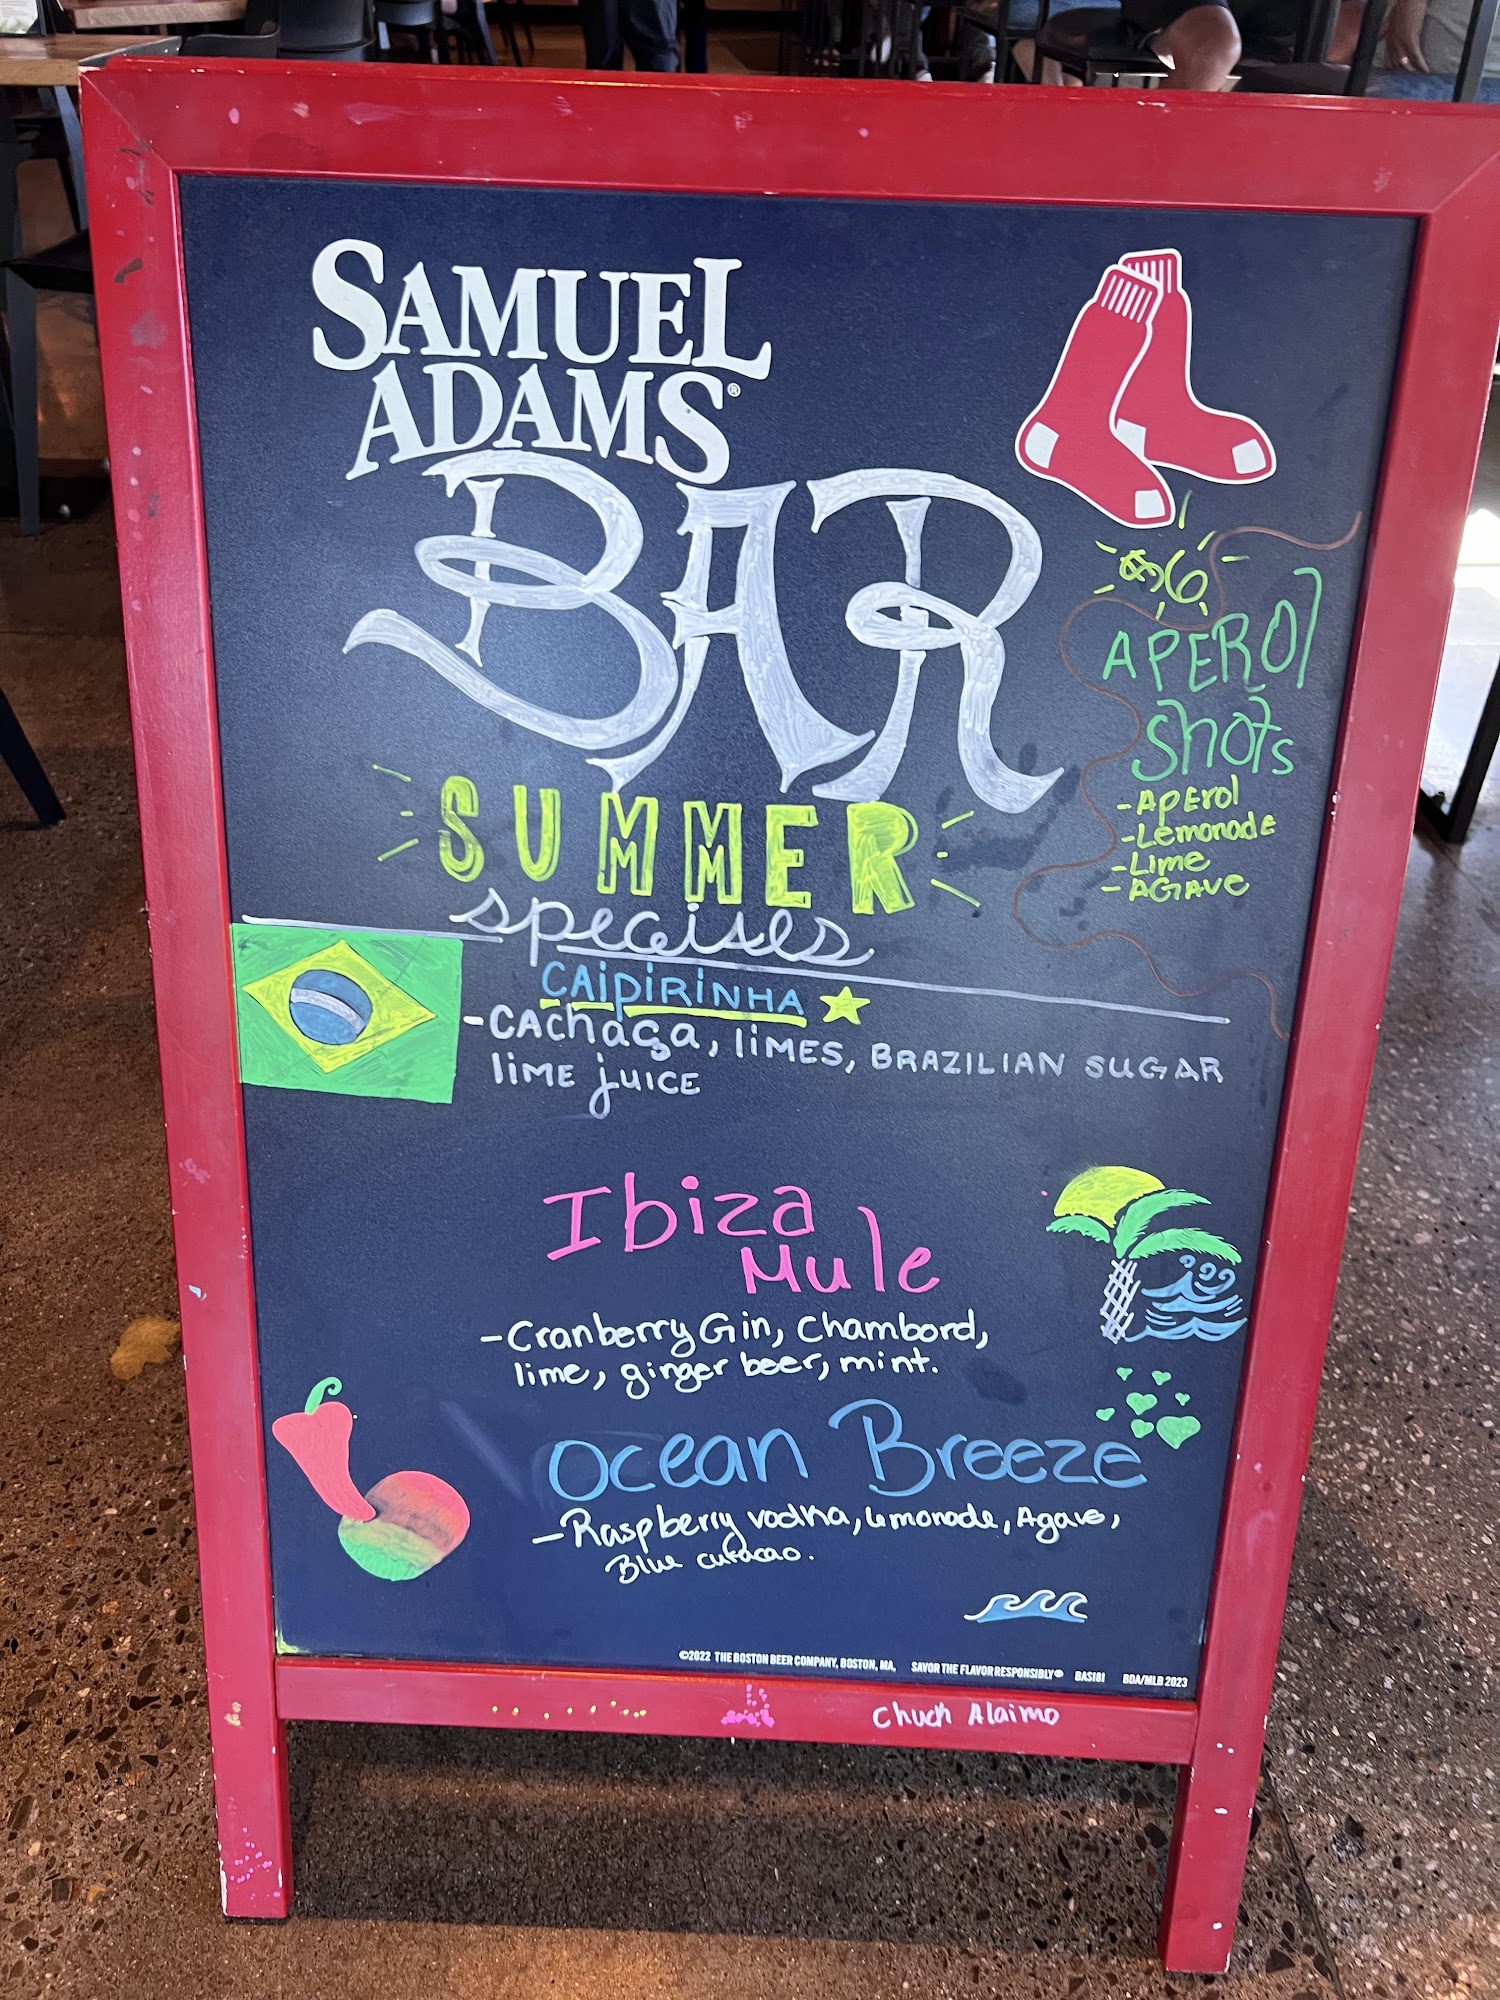 SAMUEL
ADAMS®
BAR
$6
APEROl
Shots
-APErol
-Lemonade
-Lime
-AGAVE
SUMMER
speciales
CAipiRiNHA
-CAchaça, liMES, BRAZILIAN SUGAR
liME juICE
Ibiza
Mule
-Cranberry Gin, Chambord,
lime, ginger beer, mint.
Ocean Breeze
-Raspberry vodka, lemonade, Agave,
Blue curacao.
©2022 THE BOSTON BEER COMPANY, BOSTON, MA. SAVOR THE FLAVOR RESPONSIBLY® BAS181 BDA/MLB 2023
Chuck Alaimo